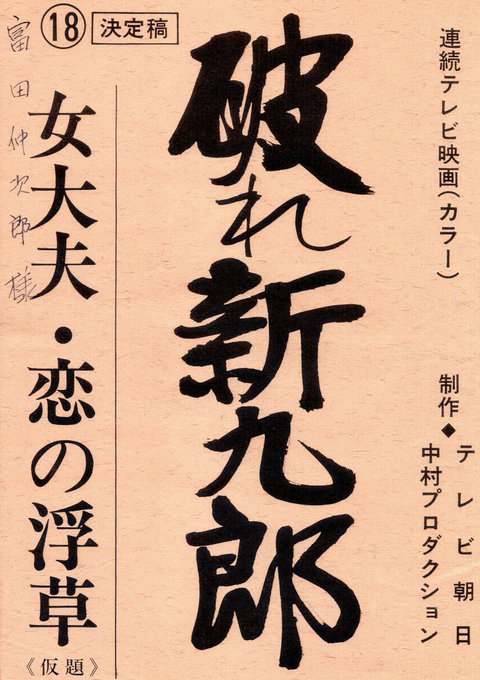 連続テレビ映画(カラー)
制作◆テレビ朝日
中村プロダクション
破れ新九郎
⑱ 決定稿
女大夫・恋の浮草
《仮題》
富田仲次郎様